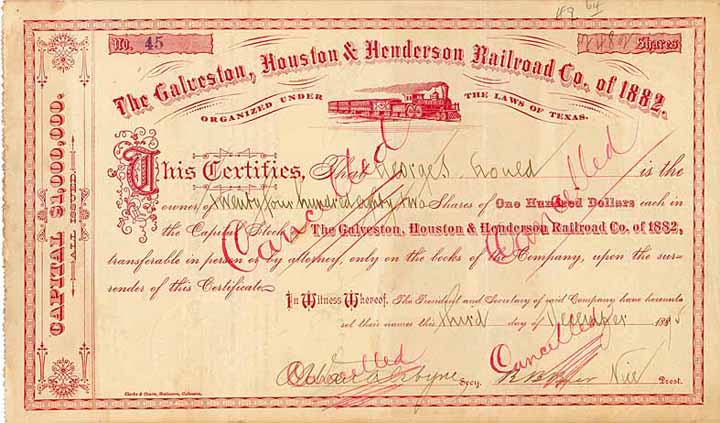 No. 45
2482 Shares
The Galveston, Houston & Henderson Railroad Co. of 1882.
ORGANIZED UNDER THE LAWS OF TEXAS.
CAPITAL $1,000,000.
ALL ISSUED.
This Certifies, That George J. Gould is the
owner of Twenty four hundred eighty two Shares of One Hundred Dollars each in
the Capital Stock The Galveston, Houston & Henderson Railroad Co. of 1882,
transferable in person or by attorney, only on the books of the Company, upon the sur-
render of this Certificate
In Witness Whereof, The President and Secretary of said Company have hereunto
set their names this third day of December 1895
Secy.
Vice Prest.
Cancelled
Cancelled
Cancelled
Cancelled